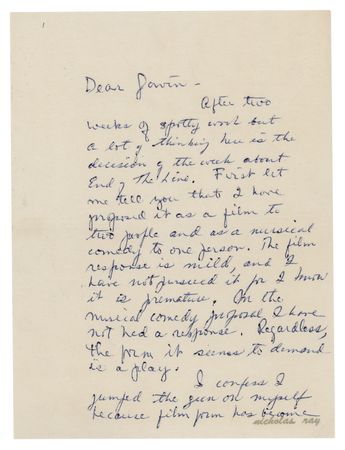 1
Dear Gowin -
After two
weeks of spotty work but
a lot of thinking here is the
decision of the week about
End of The Line. First let
me tell you that I have
proposed it as a film to
two people and as a musical
comedy to one person. The film
response is mild, and I
have not pursued it for I know
it is premature. On the
musical comedy proposal I have
not had a response. Regardless,
the form it seems to demand
is a play.
I confess I
jumped the gun on myself
because film form has become
nicholas ray